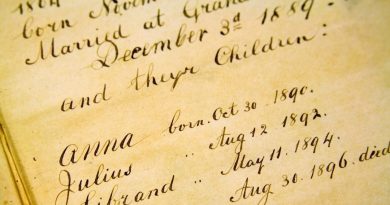 born Novem
Married at Grand
December 3d 1889.
and theyr Children:
Anna born. Oct 30. 1890.
Julius " Aug 12 1892.
librand " May 11. 1894.
" Aug 30. 1896. died